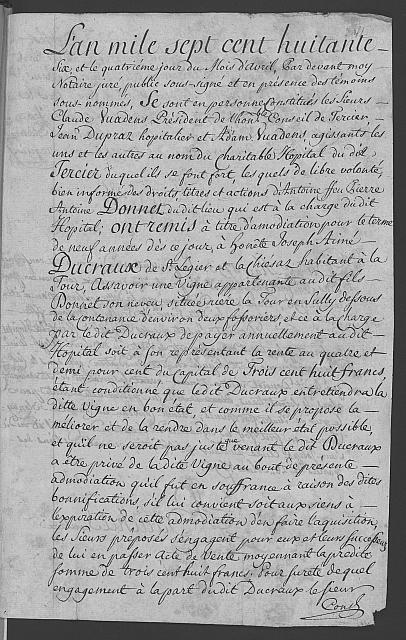 L'an mile sept cent huitante -
Six, et le quatrieme jour du Mois d'Avril, Par devant moy
Notaire juré, public sous-signé et en présence des témoins
sous-nommés, Se sont en personne constitués les Sieurs
Claude Vuadens Président de l'hon:ble Conseil de Tercier,
Jean Dupraz hopitalier et Adam Vuadens agissants les
uns et les autres au nom du charitable Hopital du dit
Tercier duquel ils se font fort, les quels de libre volonté,
bien informés des droits, titres et actions d'Antoine ffeu Pierre
Antoine Donnet dudit lieu qui est à la charge du dit
Hopital; ont remis à titre d'amodiation pour le terme
de neuf années dès ce jour, à Honête Joseph Aimé
Ducraux de St Legier et la Chiesaz habitant à la
Tour, Assavoir une Vigne appartenante audit fils
Donnet son neveu, située riére la Tour en Sully dessous
de la contenance d'environ deux fossoriers, et ce à la charge
par le dit Ducraux de payer annuellement au dit
Hopital soit à son représentant la rente au quatre et
demi pour cent du Capital de Trois cent huit francs,
étant conditionné que le dit Ducraux entretiendra la
ditte Vigne en bon etat, et comme il se propose la
méliorer et de la rendre dans le meilleur état possible,
et qu'il ne seroit pas juste que venant le dit Ducraux
a être privé de la dite Vigne au bout de présente
admodiation qu'il fut en souffrance à raison des dites
bonnifications, s'il lui convient soit aux siens à
l'expiration de cette admodiation d'en faire l'aquisition,
les Sieurs préposés s'engagent pour eux et leurs successeurs
de lui en passer Acte de Vente moyennant la prédite
somme de trois cent huit francs. Pour sureté de quel
engagement à la part du dit Ducraux le sieur
Cons:r